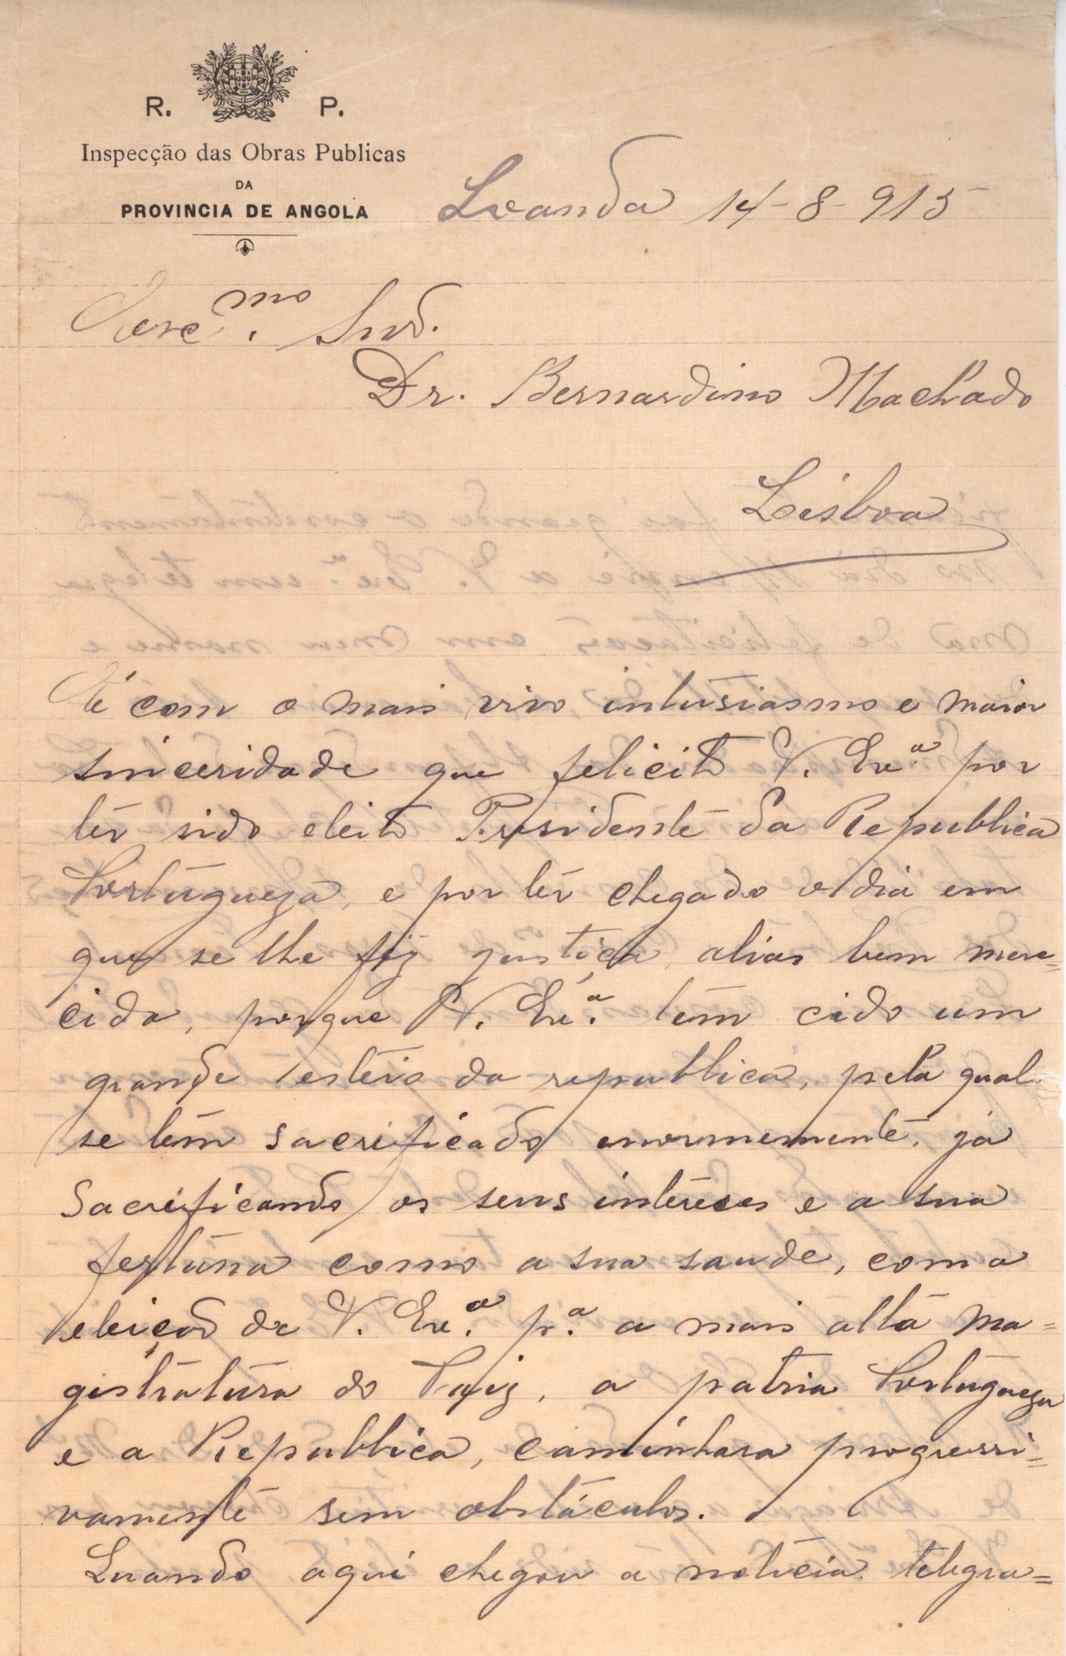 R. P.
Inspecção das Obras Publicas
DA
PROVINCIA DE ANGOLA
Loanda 14-8-915
Exc.mo Snr.
Dr. Bernardino Machado
Lisboa
É com o mais vivo intusiasmo e maior
sinceridade que felicito V. Ex.a por
têr sido eleito Presidente da Republica
Portugueza, e por têr chegado o dia em
que se lhe fez justiça, alias bem mere=
cida, porque V. Ex.a têm cido um
grande esteio da republica, pela qual
se têm sacrificado enormemente, já
Sacrificando os seus intereses e a sua
fortuna como a sua saude, com a
eleição de V. Ex.a p.a a mais alta ma=
gistratura do Paiz, a patria Portugueza
e a Republica, caminhara progressi=
vamente sem obstáculos.
Quando aqui chegou a noticia telegra=